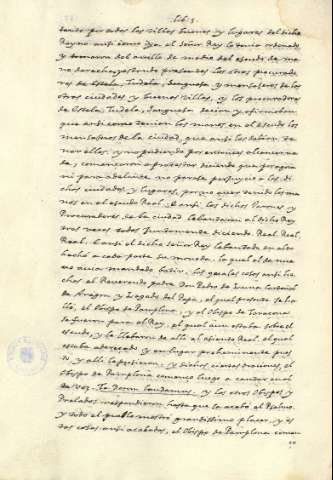 Lib. 3.
tando por todos los villes buenas y lugares del dicho
Reyno ansi como ya el Señor Rey lo tenia ordenado
y tomaron del anillo de medio del escudo de ma
no derecha, estando presentes los otros procurado
res de Estela, Tudela, Sanguesa, y mensageros de las
otras ciudades, y buenas villas, y los procuradores
de Estela, Tudela, Sanguesa decian y afirmaban
que ansi como tenian las manos en el escudo los
mensageros de la ciudad, que ansi los debian te
ner ellos, y no pudiendo por entonces alcanzarlo
, comenzaron a protestar diciendo que por aquí
ni para adelante no parase perjuycio a los di
chas ciudades, y lugares, por no aver tenido las ma
nos en el escudo Real. E ansi los dichos Varones y
Procuradores de la ciudad labandaron al dicho Rey
tres veces todos juntamente diciendo Real, Real,
Real: E ansi el dicho Señor Rey labantado en alto
hechó a cada parte su moneda, la qual el de nue
vo avia mandado batir. Los quales cosas ansi he
chas el Reverendo padre Don Pedro de Luna Cardenal
de Aragon, y Legado del Papa, el qual presente se ha
lló, el Obispo de Pamplona, y el Obispo de Tarazona
se fueron para el Rey, el qual aun estaba sobre el
escudo, y lo llebaron de allí al asiento Real, el qual
estaba aderezado y en lugar preheminente pues
to, y allí lo pusieron, y dichas ciertas oraciones, el
Obispo de Pamplona comenzo luego a cantar en al
ta voz. Te Deum laudamus, y los otros Obispos y
Prelados respondieron hasta que lo acabó el Psalmo
y todo el pueblo mostró grandissimo placer, y es
tas cosas ansi acabadas, el Obispo de Pamplona comen